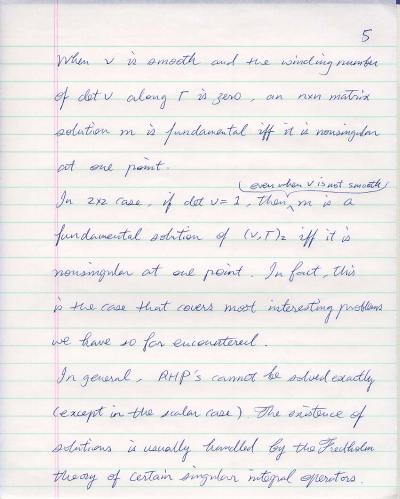 5
When v is smooth and the winding number
of det v along Γ is zero, an nxn matrix
solution m is fundamental iff it is nonsingular
at one point.
(even when v is not smooth)
In 2x2 case, if det v = 1, then m is a
fundamental solution of (v, Γ)₂ iff it is
nonsingular at one point. In fact, this
is the case that covers most interesting problems
we have so far encountered.
In general, RHP's cannot be solved exactly
(except in the scalar case). The existence of
solutions is usually handled by the Fredholm
theory of certain singular integral operators.